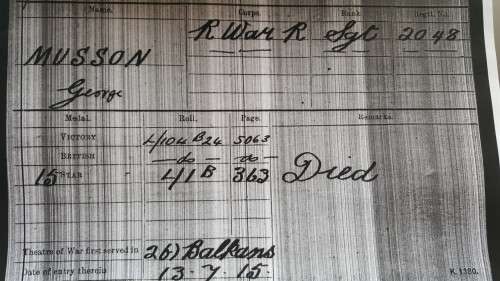 Name. Corps. Rank. Regtl. No.
MUSSON R War R Sgt 2048
George
Medal. Roll. Page. Remarks.
VICTORY L/104 B24 5063
BRITISH —do— —do—
15 STAR L/1B 363 Died
Theatre of War first served in 2b) Balkans
Date of entry therein 13.7.15.
K. 1380.